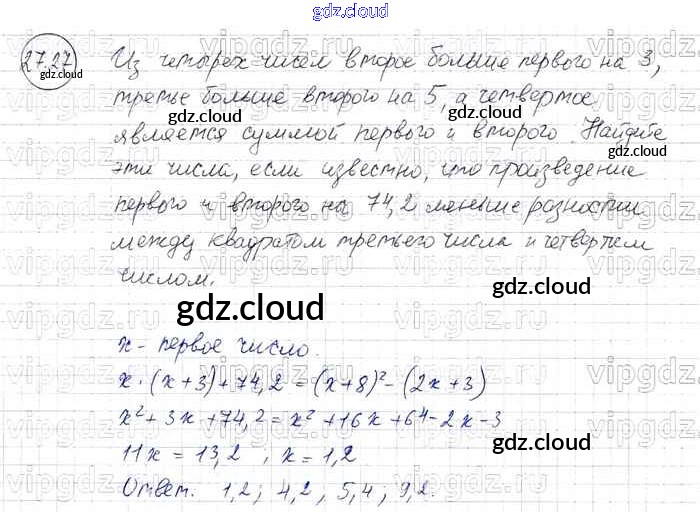 gdz.cloud
27.27 Из четырех чисел второе больше первого на 3,
gdz.cloud
третье больше второго на 5, а четвертое
gdz.cloud
является суммой первого и второго. Найдите
gdz.cloud
эти числа, если известно, что произведение
первого и второго на 74,2 меньше разности
gdz.cloud
между квадратом третьего числа и четвертым
числом.
gdz.cloud
gdz.cloud
x - первое число.
gdz.cloud
x · (x+3) + 74,2 = (x+8)² - (2x+3)
x² + 3x + 74,2 = x² + 16x + 64 - 2x - 3
gdz.cloud
11x = 13,2 ; x = 1,2
Ответ. 1,2 ; 4,2 ; 5,4 ; 9,2.
gdz.cloud